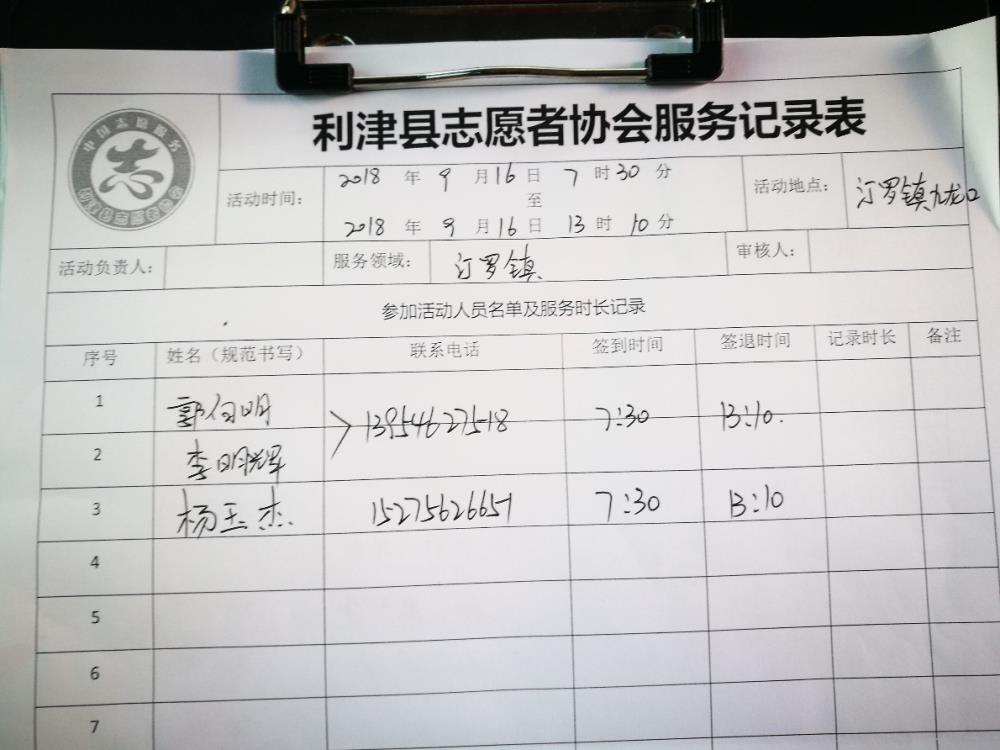 利津县志愿者协会服务记录表
中国志愿服务
志
活动时间: 2018 年 9 月 16 日 7 时 30 分
至
2018 年 9 月 16 日 13 时 10 分
活动地点: 汀罗镇九龙口
活动负责人: 服务领域: 汀罗镇 审核人:
参加活动人员名单及服务时长记录
序号 姓名（规范书写） 联系电话 签到时间 签退时间 记录时长 备注
1 郭付明 13954627518 7:30 13:10.
2 李明辉
3 杨玉杰 15275626651 7:30 13:10
4
5
6
7